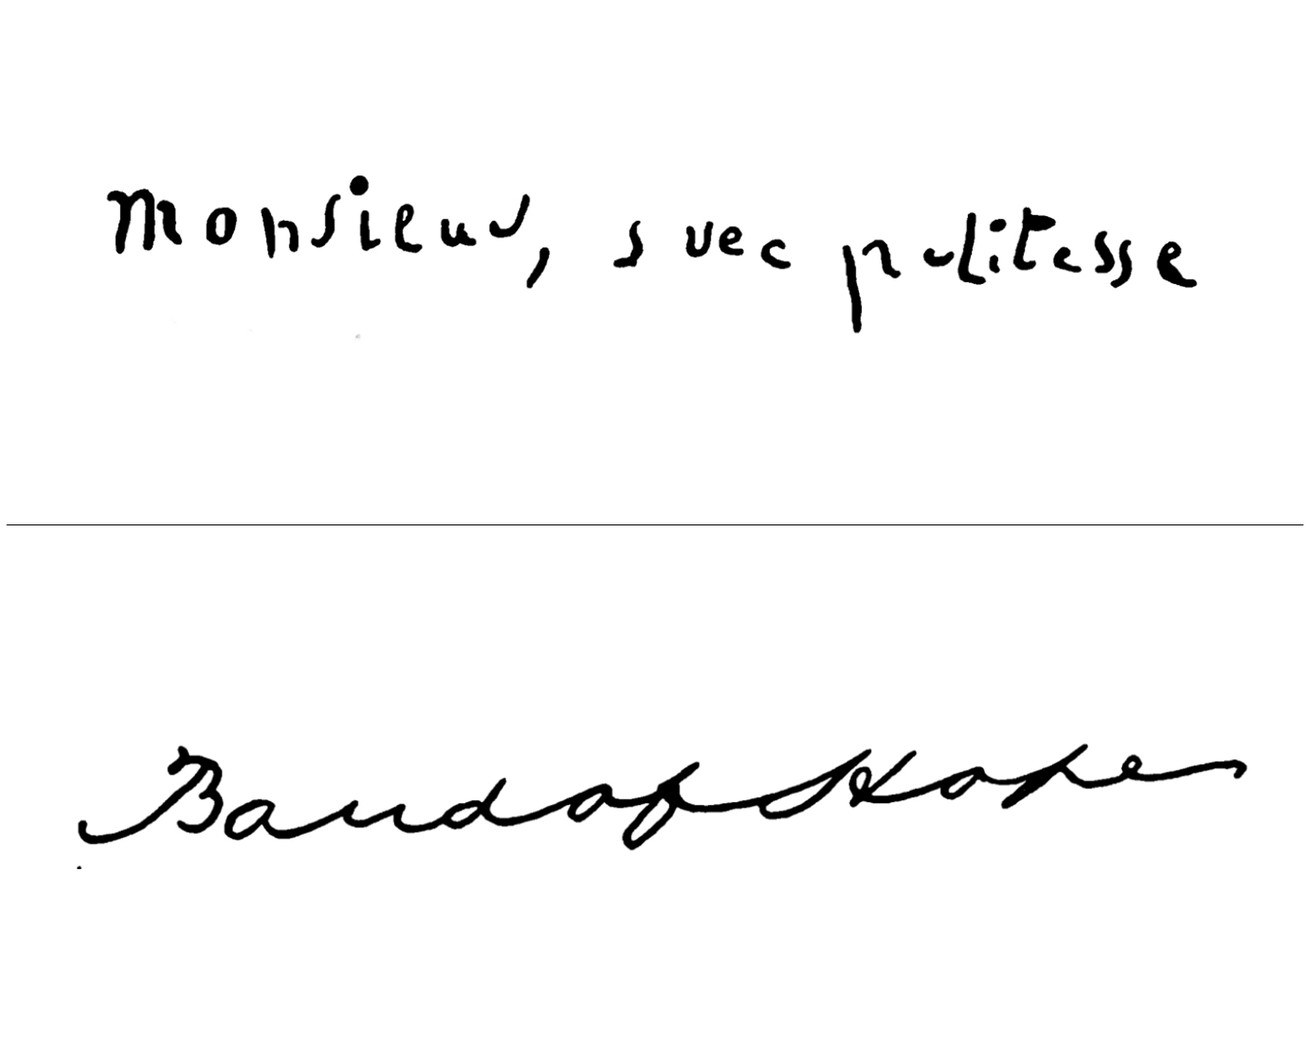 Monsieur, avec politesse
Band of Hope